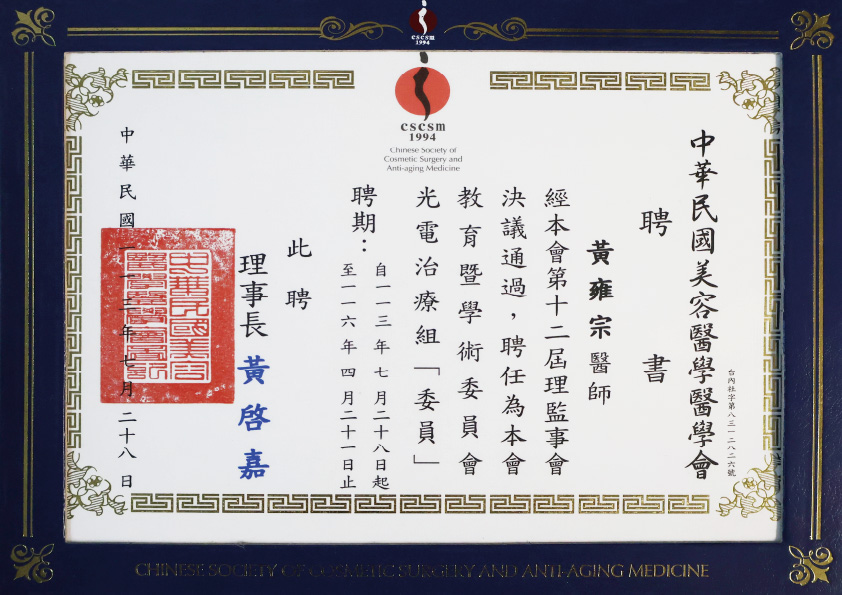 cscsm
1994
cscsm
1994
Chinese Society of
Cosmetic Surgery and
Anti-aging Medicine
台內社字第八三一二八二六號
中華民國美容醫學醫學會
聘書
黃雍宗醫師
經本會第十二屆理監事會
決議通過，聘任為本會
教育暨學術委員會
光電治療組「委員」
聘期：
自一一三年七月二十八日起
至一一六年四月二十一日止
此聘
理事長 黃啓嘉
中華民國美容
醫學醫學會圖記
中華民國一一三年七月二十八日
CHINESE SOCIETY OF COSMETIC SURGERY AND ANTI-AGING MEDICINE